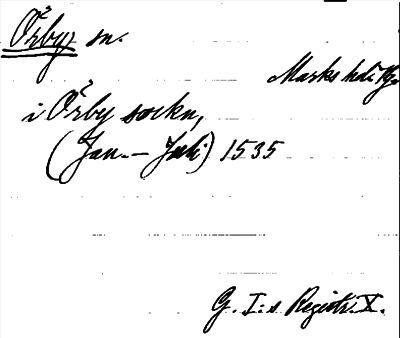 Örby sn.
Marks hd
i Örby sockn,
(Jan. – Juli) 1535
G. I:s Registr. X.